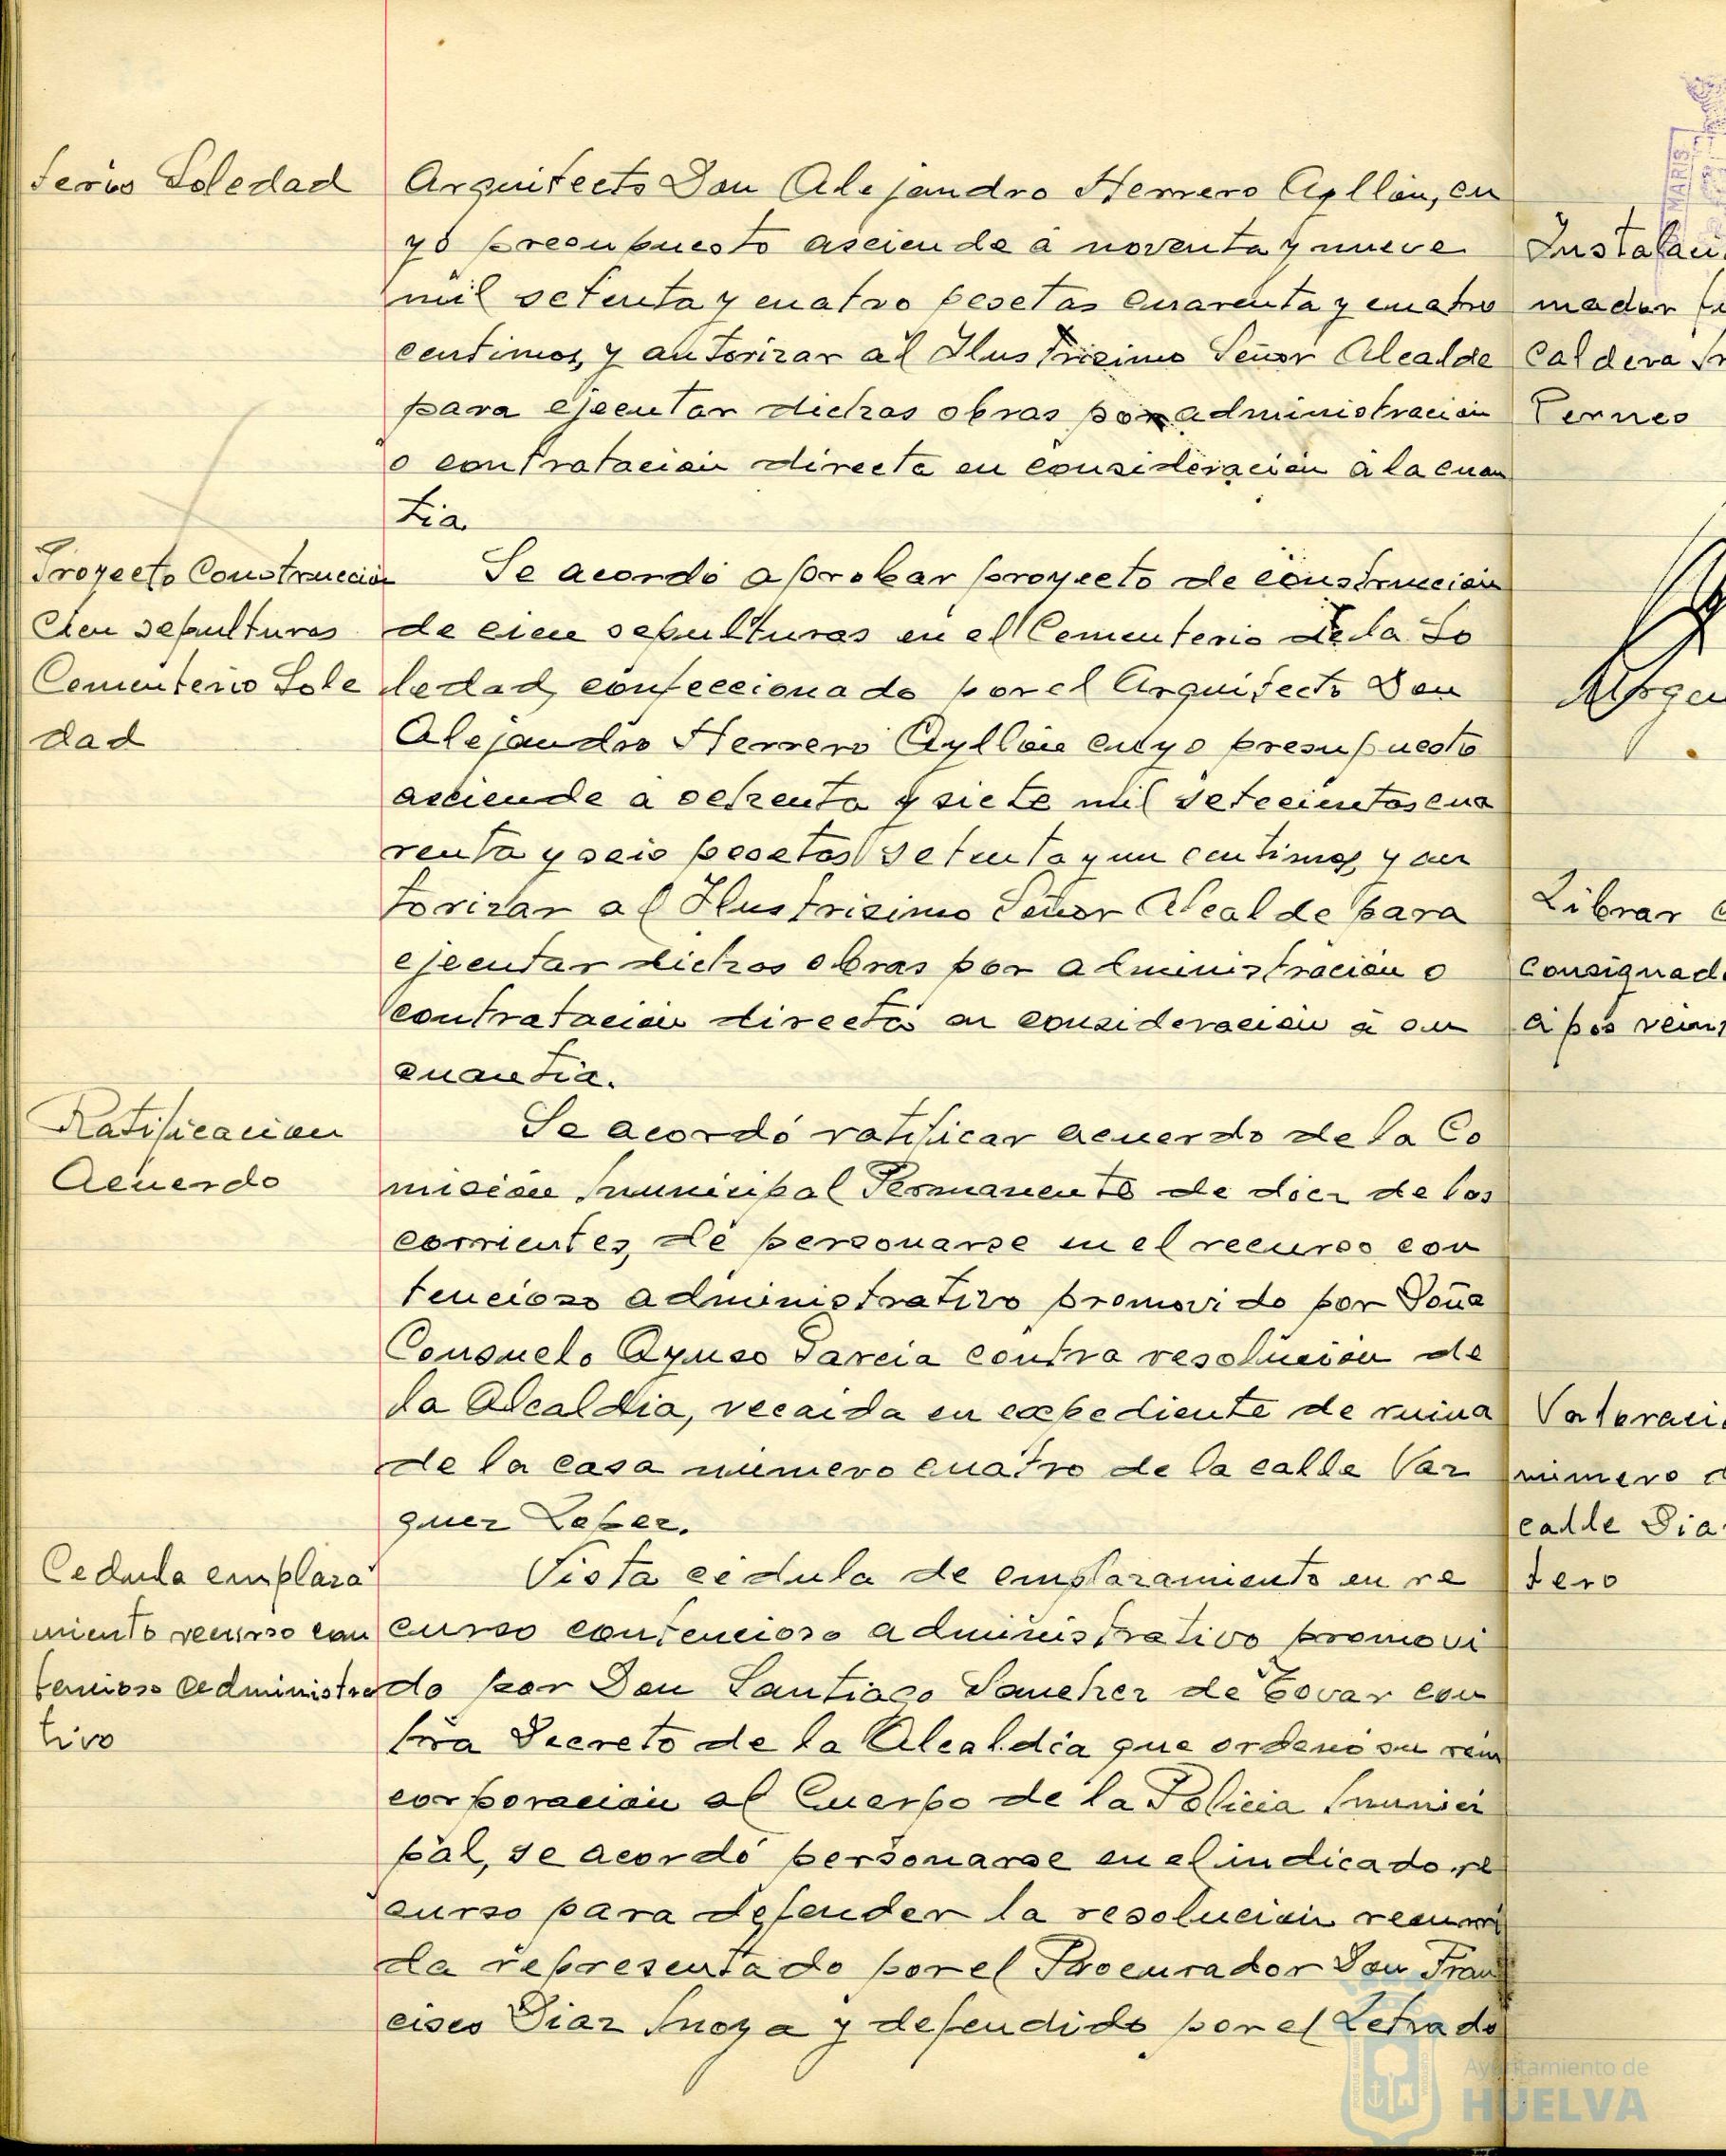 terio Soledad
Arquitecto Don Alejandro Herrero Ayllón, cu
yo presupuesto asciende á noventa y nueve
mil setenta y cuatro pesetas cuarenta y cuatro
centimos, y autorizar al Ilustrisimo Señor Alcalde
para ejecutar dichas obras por administración
o contratación directa en consideración á la cuan
tia.
Proyecto Construcción
cien sepulturas
Cementerio Sole
dad
Se acordó aprobar proyecto de construcción
de cien sepulturas en el Cementerio de la So
ledad, confeccionado por el Arquitecto Don
Alejandro Herrero Ayllón cuyo presupuesto
asciende a ochenta y siete mil setecientas cua
renta y seis pesetas setenta y un centimos, y au
torizar al Ilustrisimo Señor Alcalde para
ejecutar dichas obras por administración o
contratación directa en consideración á su
cuantia.
Ratificacion
Acuerdo
Se acordó ratificar acuerdo de la Co
misión Municipal Permanente de diez de los
corrientes, de personarse en el recurso con
tencioso administrativo promovido por Doña
Consuelo Ayuso Garcia contra resolución de
la Alcaldia, recaida en expediente de ruina
de la casa número cuatro de la calle Vaz
quez Lopez.
Cedula emplaza
miento recurso con
tencioso administra
tivo
Vista cédula de emplazamiento en re
curso contencioso administrativo promovi
do por Don Santiago Sanchez de Tovar con
tra Decreto de la Alcaldía que ordenó su rein
corporación al Cuerpo de la Policia Munici
pal, se acordó personarse en el indicado re
curso para defender la resolución recurri
da representado por el Procurador Don Fran
cisco Diaz Moya y defendido por el Letrado
Instalaci
mador
Caldera
Perneo
Librar
consignad
á
Valoraci
número
calle Dia
tero
MARIS
Ayuntamiento de
HUELVA